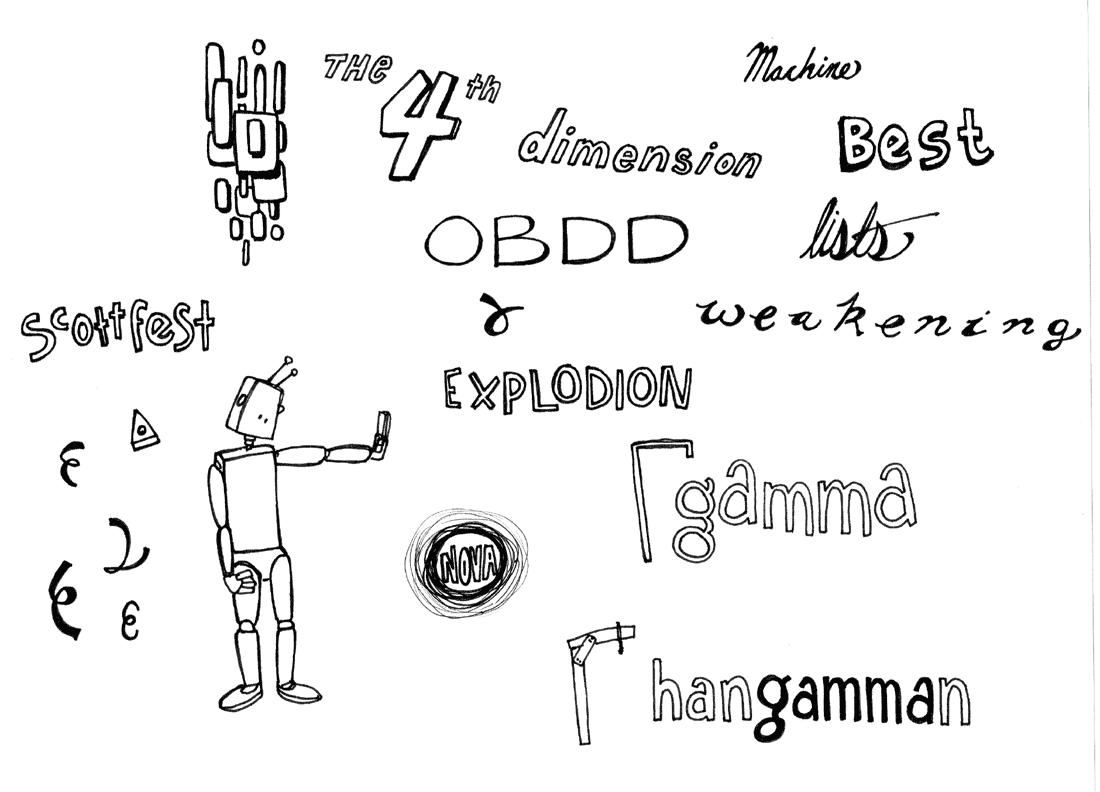 THE 4th dimension
Machine
Best
OBDD
lists
scottfest
weakening
EXPLODION
Γgamma
NOVA
Γ
hangamman